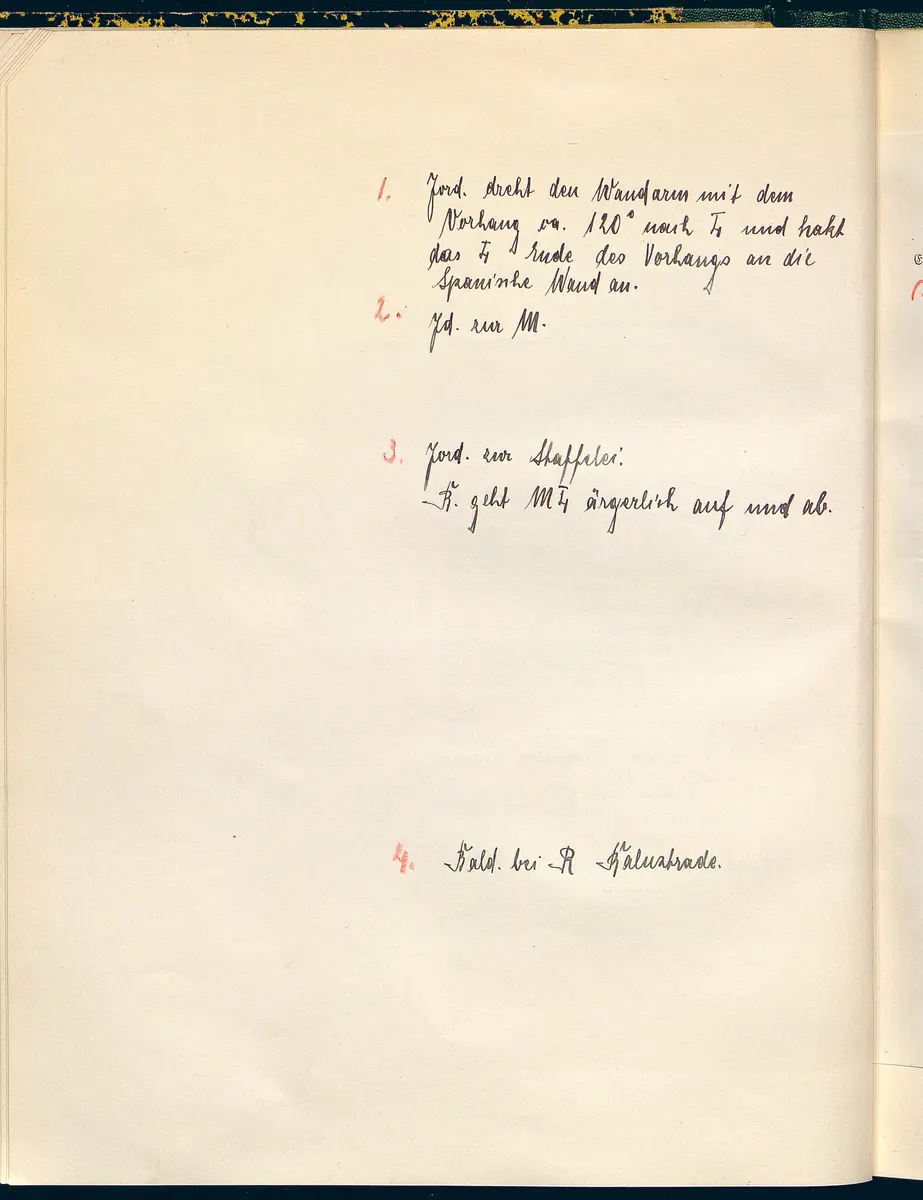 1. Jord. dreht den Wandarm mit dem
Vorhang ca. 120° nach L und hakt
das L Ende des Vorhangs an die
Spanische Wand an.
2. Jd. zur M.
3. Jord. zur Staffelei.
B. geht ML ärgerlich auf und ab.
4. Bald. bei R Balustrade.